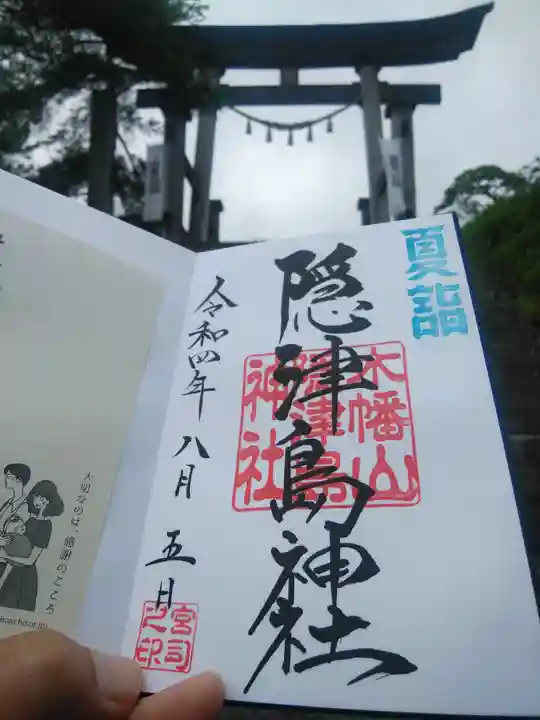 夏詣
隠津島神社
木幡山
隠津島
神社
令和四年八月五日
宮司
之印
大切なのは、感謝のこころ